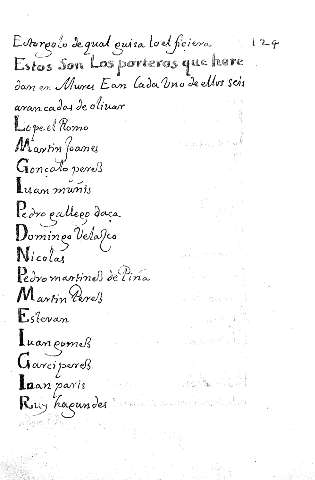 Estorgolo de qual guisa lo el ficiera. 124
Estos Son Los porteros que here
dan en Mures Ean Cada Uno de ellos seis
arancadas de olivar
Lope el Romo
Martin Joanes
Gonçalo pereß
Iuan muñis
Pedro gallego daça
Domingo Velasco
Nicolas
Pedro martineß de Piña
Martin Pereß
Estevan
Iuan gomeß
Garci pereß
Ioan paris
Ruy hagundes